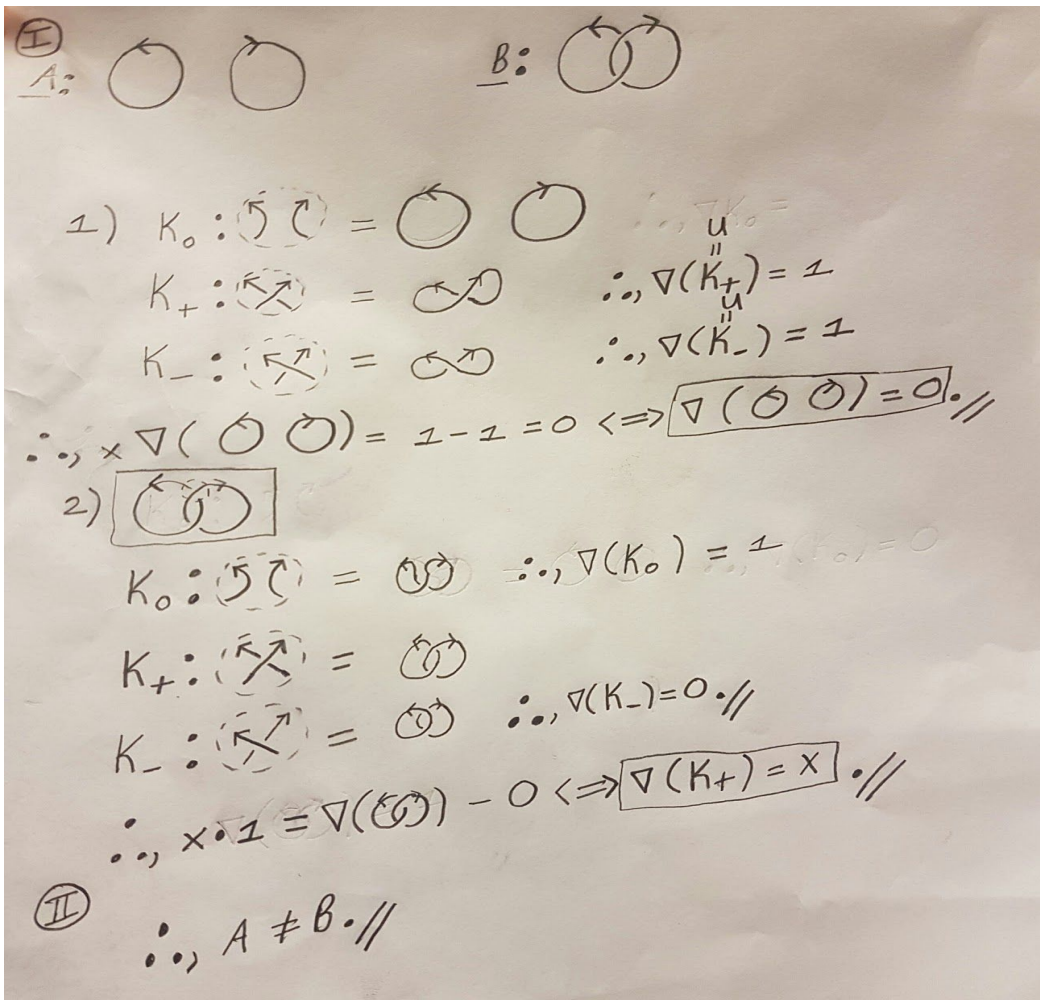 I
A: B:
1) K₀ : =
K₊ : = ∴, ∇(K₊) = 1
u
=
K₋ : = ∴, ∇(K₋) = 1
u
=
∴, x ∇( ) = 1 - 1 = 0 <=> ∇( ) = 0.//
2)
K₀ : = ∴, ∇(K₀) = 1
K₊ : =
K₋ : = ∴, ∇(K₋)=0.//
∴, x•1 = ∇( ) - 0 <=> ∇(K₊) = x .//
II
∴, A ≠ B.//